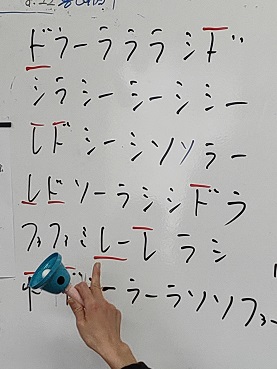 ドラーラララシド
シラシーシーシシー
レドシーシソソラー
レドソーラシシドラ
ファファミレーレラシ
ーラーラソソファー